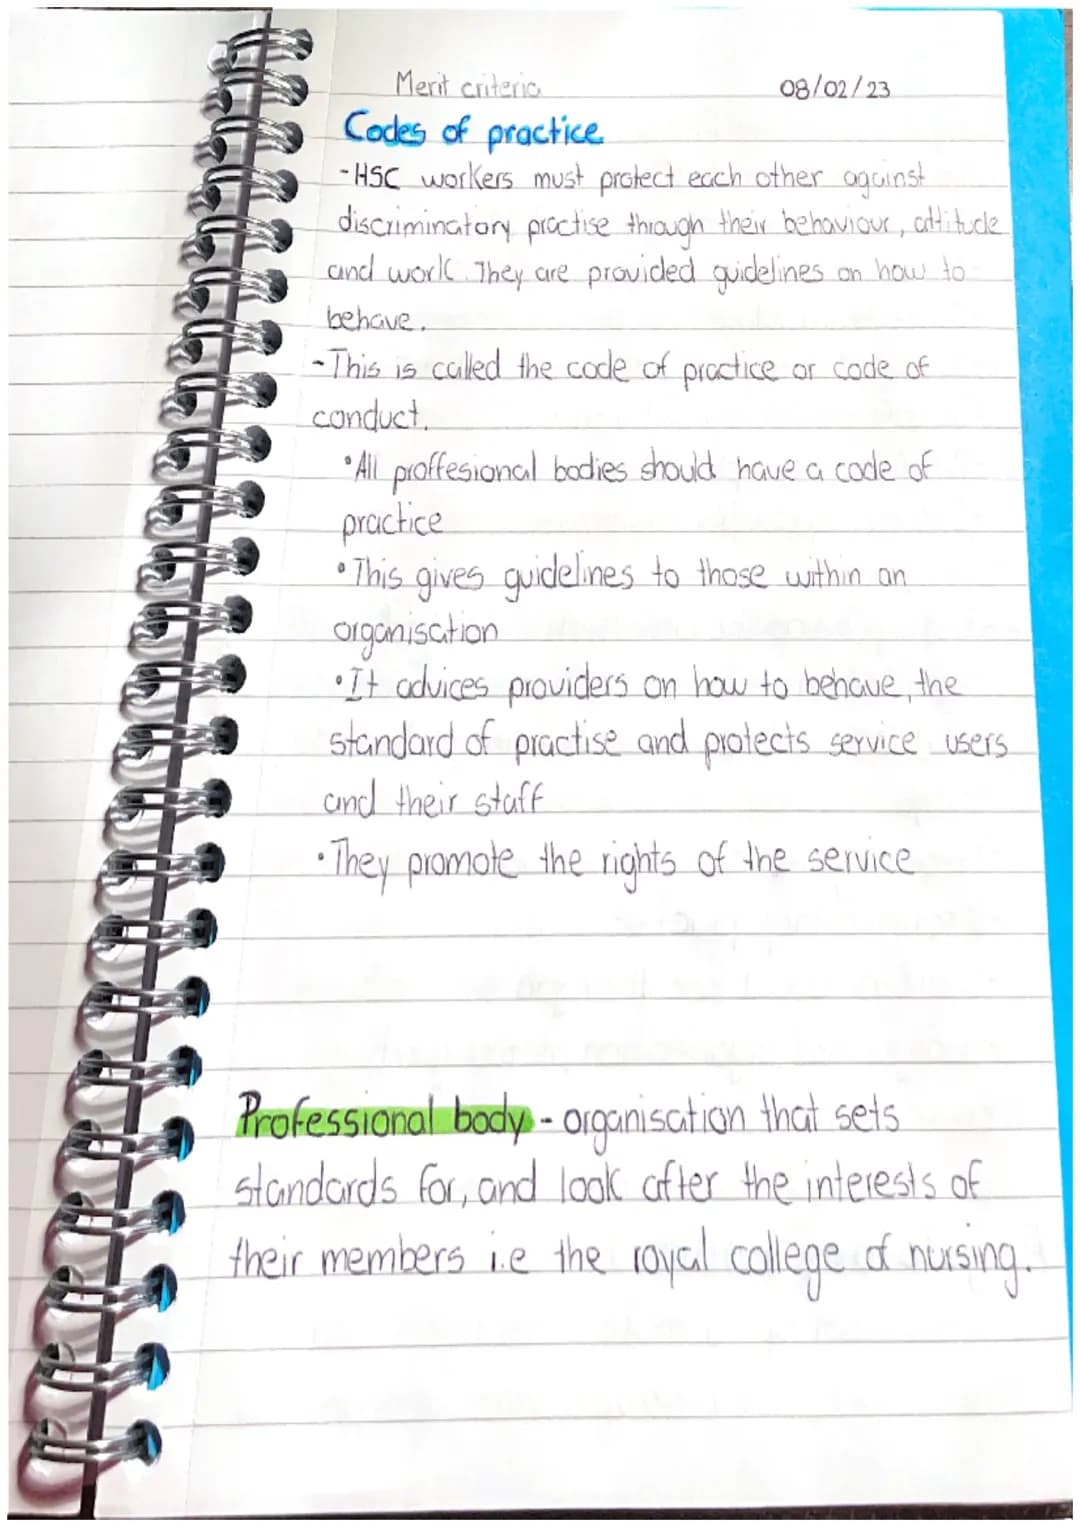 Merit criteria 08/02/23
Codes of practice
-HSC workers must protect each other against
discriminatory practise through their behaviour, attitude
and work. They are provided guidelines on how to
behave.
-This is called the code of practice or code of
conduct.
•All proffesional bodies should have a code of
practice
•This gives guidelines to those within an
organisation
•It advices providers on how to behave, the
standard of practise and protects service users
and their staff
•They promote the rights of the service
Professional body - organisation that sets
standards for, and look after the interests of
their members i.e the royal college of nursing.